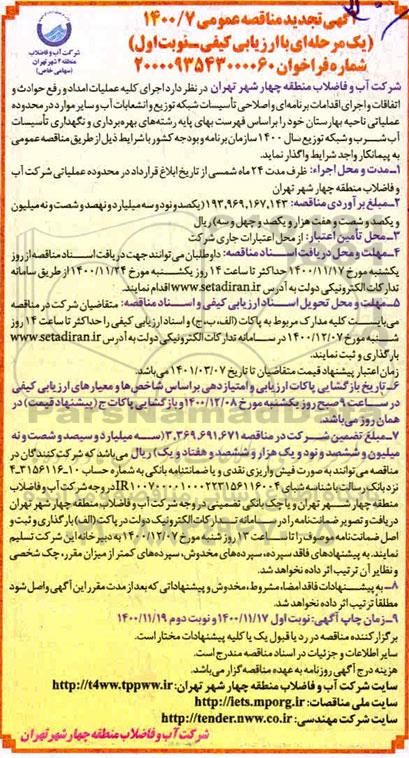 آگهی تجدید مناقصه عمومی ۱۴۰۰/۷
(یک مرحله‌ای با ارزیابی کیفی ـ نوبت اول)
شماره فراخوان ۲۰۰۰۰۹۳۵۴۳۰۰۰۰۶۰
شرکت آب و فاضلاب
منطقه ۴ شهر تهران
(سهامی خاص)
شرکت آب و فاضلاب منطقه چهار شهر تهران در نظر دارد اجرای کلیه عملیات امداد و رفع حوادث و
اتفاقات و اجرای اقدامات برنامه‌ای و اصلاحی تأسیسات شبکه توزیع و انشعابات آب و سایر موارد در محدوده
عملیاتی ناحیه بهارستان خود را بر اساس فهرست بهای پایه رشته‌های بهره‌برداری و نگهداری تأسیسات
آب شرب و شبکه توزیع سال ۱۴۰۰ سازمان برنامه و بودجه کشور با شرایط ذیل از طریق مناقصه عمومی
به پیمانکار واجد شرایط واگذار نماید.
۱ـ مدت و محل اجراء: ظرف مدت ۲۴ ماه شمسی از تاریخ ابلاغ قرارداد در محدوده عملیاتی شرکت آب
و فاضلاب منطقه چهار شهر تهران
۲ـ مبلغ برآوردی مناقصه: ۱۹۳,۹۶۹,۱۶۷,۱۴۳ (یکصد و نود و سه میلیارد و نهصد و شصت و نه میلیون
و یکصد و شصت و هفت هزار و یکصد و چهل و سه) ریال
۳ـ محل تأمین اعتبار: از محل اعتبارات جاری شرکت
۴ـ مهلت و محل دریافت اسناد مناقصه: داوطلبان می‌توانند جهت دریافت اسناد مناقصه از روز
یکشنبه مورخ ۱۴۰۰/۱۱/۱۷ حداکثر تا ساعت ۱۴ روز یکشنبه مورخ ۱۴۰۰/۱۱/۲۴ از طریق سامانه
تدارکات الکترونیکی دولت به آدرس www.setadiran.ir اقدام نمایند.
۵ـ مهلت و محل تحویل اسناد ارزیابی کیفی و اسناد مناقصه: متقاضیان شرکت در مناقصه
می‌بایست کلیه مدارک مربوط به پاکات (الف، ب، ج) و اسناد ارزیابی کیفی را حداکثر تا ساعت ۱۴ روز
شنبه مورخ ۱۴۰۰/۱۲/۰۷ در سامانه تدارکات الکترونیکی دولت به آدرس www.setadiran.ir
بارگذاری و ثبت نمایند.
زمان اعتبار پیشنهاد قیمت متقاضیان تا تاریخ ۱۴۰۱/۰۳/۰۷ می‌باشد.
۶ـ تاریخ بازگشایی پاکات ارزیابی و امتیازدهی بر اساس شاخص‌ها و معیارهای ارزیابی کیفی
در ساعت ۹ صبح روز یکشنبه مورخ ۱۴۰۰/۱۲/۰۸ و بازگشایی پاکات ج (پیشنهاد قیمت) در
همان روز می‌باشد.
۷ـ مبلغ تضمین شرکت در مناقصه ۳,۳۶۹,۶۹۱,۶۷۱ (سه میلیارد و سیصد و شصت و نه
میلیون و ششصد و نود و یک هزار و ششصد و هفتاد و یک) ریال می‌باشد که شرکت‌کنندگان در
مناقصه می‌توانند به صورت فیش واریزی نقدی و یا ضمانتنامه بانکی به شماره حساب ۱۰-۳۱۵۶۱۱۶-۴
نزد بانک رسالت با شناسه شبای IR۱۰۰۷۰۰۰۰۱۰۰۰۲۲۳۱۵۶۱۱۶۰۰۴ در وجه شرکت آب و فاضلاب
منطقه چهار شهر تهران و یا چک بانکی تضمینی در وجه شرکت آب و فاضلاب منطقه چهار شهر تهران
دریافت و تصویر ضمانت‌نامه را در سامانه تدارکات الکترونیک دولت در پاکت (الف) بارگذاری و ثبت و
اصل ضمانت‌نامه موصوف را تا ساعت ۱۳ روز شنبه مورخ ۱۴۰۰/۱۲/۰۷ به دبیرخانه این شرکت تسلیم
نمایند. به پیشنهادهای فاقد سپرده، سپرده‌های مخدوش، سپرده‌های کمتر از میزان مقرر، چک شخصی
و نظایر آن ترتیب اثر داده نخواهد شد.
۸ـ به پیشنهادات فاقد امضا، مشروط، مخدوش و پیشنهاداتی که بعد از مدت مقرر این آگهی واصل شود
مطلقاً ترتیب اثر داده نخواهد شد.
۹ـ زمان چاپ آگهی: نوبت اول ۱۴۰۰/۱۱/۱۷ و نوبت دوم ۱۴۰۰/۱۱/۱۹
برگزارکننده مناقصه در رد یا قبول یک یا کلیه پیشنهادات مختار است.
سایر اطلاعات و جزئیات در اسناد مناقصه مندرج است.
هزینه درج آگهی روزنامه به عهده مناقصه‌گزار می‌باشد.
سایت شرکت آب و فاضلاب منطقه چهار شهر تهران: http://t4ww.tppww.ir
سایت ملی مناقصات: http://iets.mporg.ir
سایت شرکت مهندسی: http://tender.nww.co.ir
شرکت آب و فاضلاب منطقه چهار شهر تهران